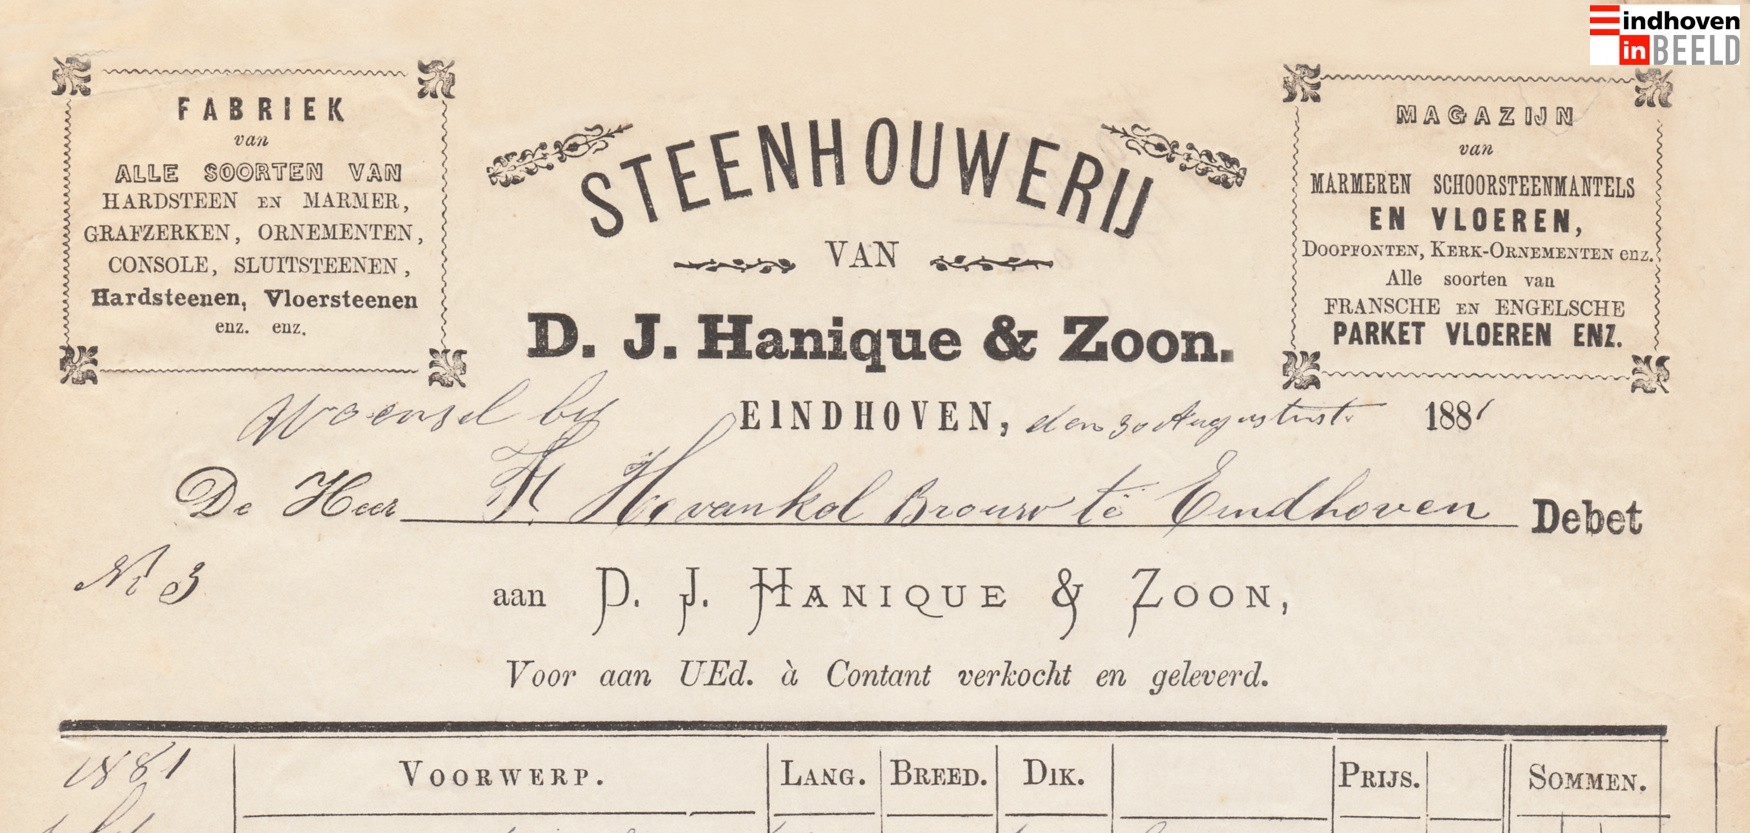 Eindhoven
in BEELD
FABRIEK
van
ALLE SOORTEN VAN
HARDSTEEN EN MARMER,
GRAFZERKEN, ORNEMENTEN,
CONSOLE, SLUITSTEENEN,
Hardsteenen, Vloersteenen
enz. enz.
STEENHOUWERIJ
VAN
D. J. Hanique & Zoon.
MAGAZIJN
van
MARMEREN SCHOORSTEENMANTELS
EN VLOEREN,
DOOPFONTEN, KERK-ORNEMENTEN enz.
Alle soorten van
FRANSCHE EN ENGELSCHE
PARKET VLOEREN ENZ.
Woensel by EINDHOVEN, den 30 Augustus 1881
De Heer te Eindhoven Debet
No 3
aan D. J. HANIQUE & ZOON,
Voor aan UEd. à Contant verkocht en geleverd.
1881 VOORWERP. LANG. BREED. DIK. PRIJS. SOMMEN.